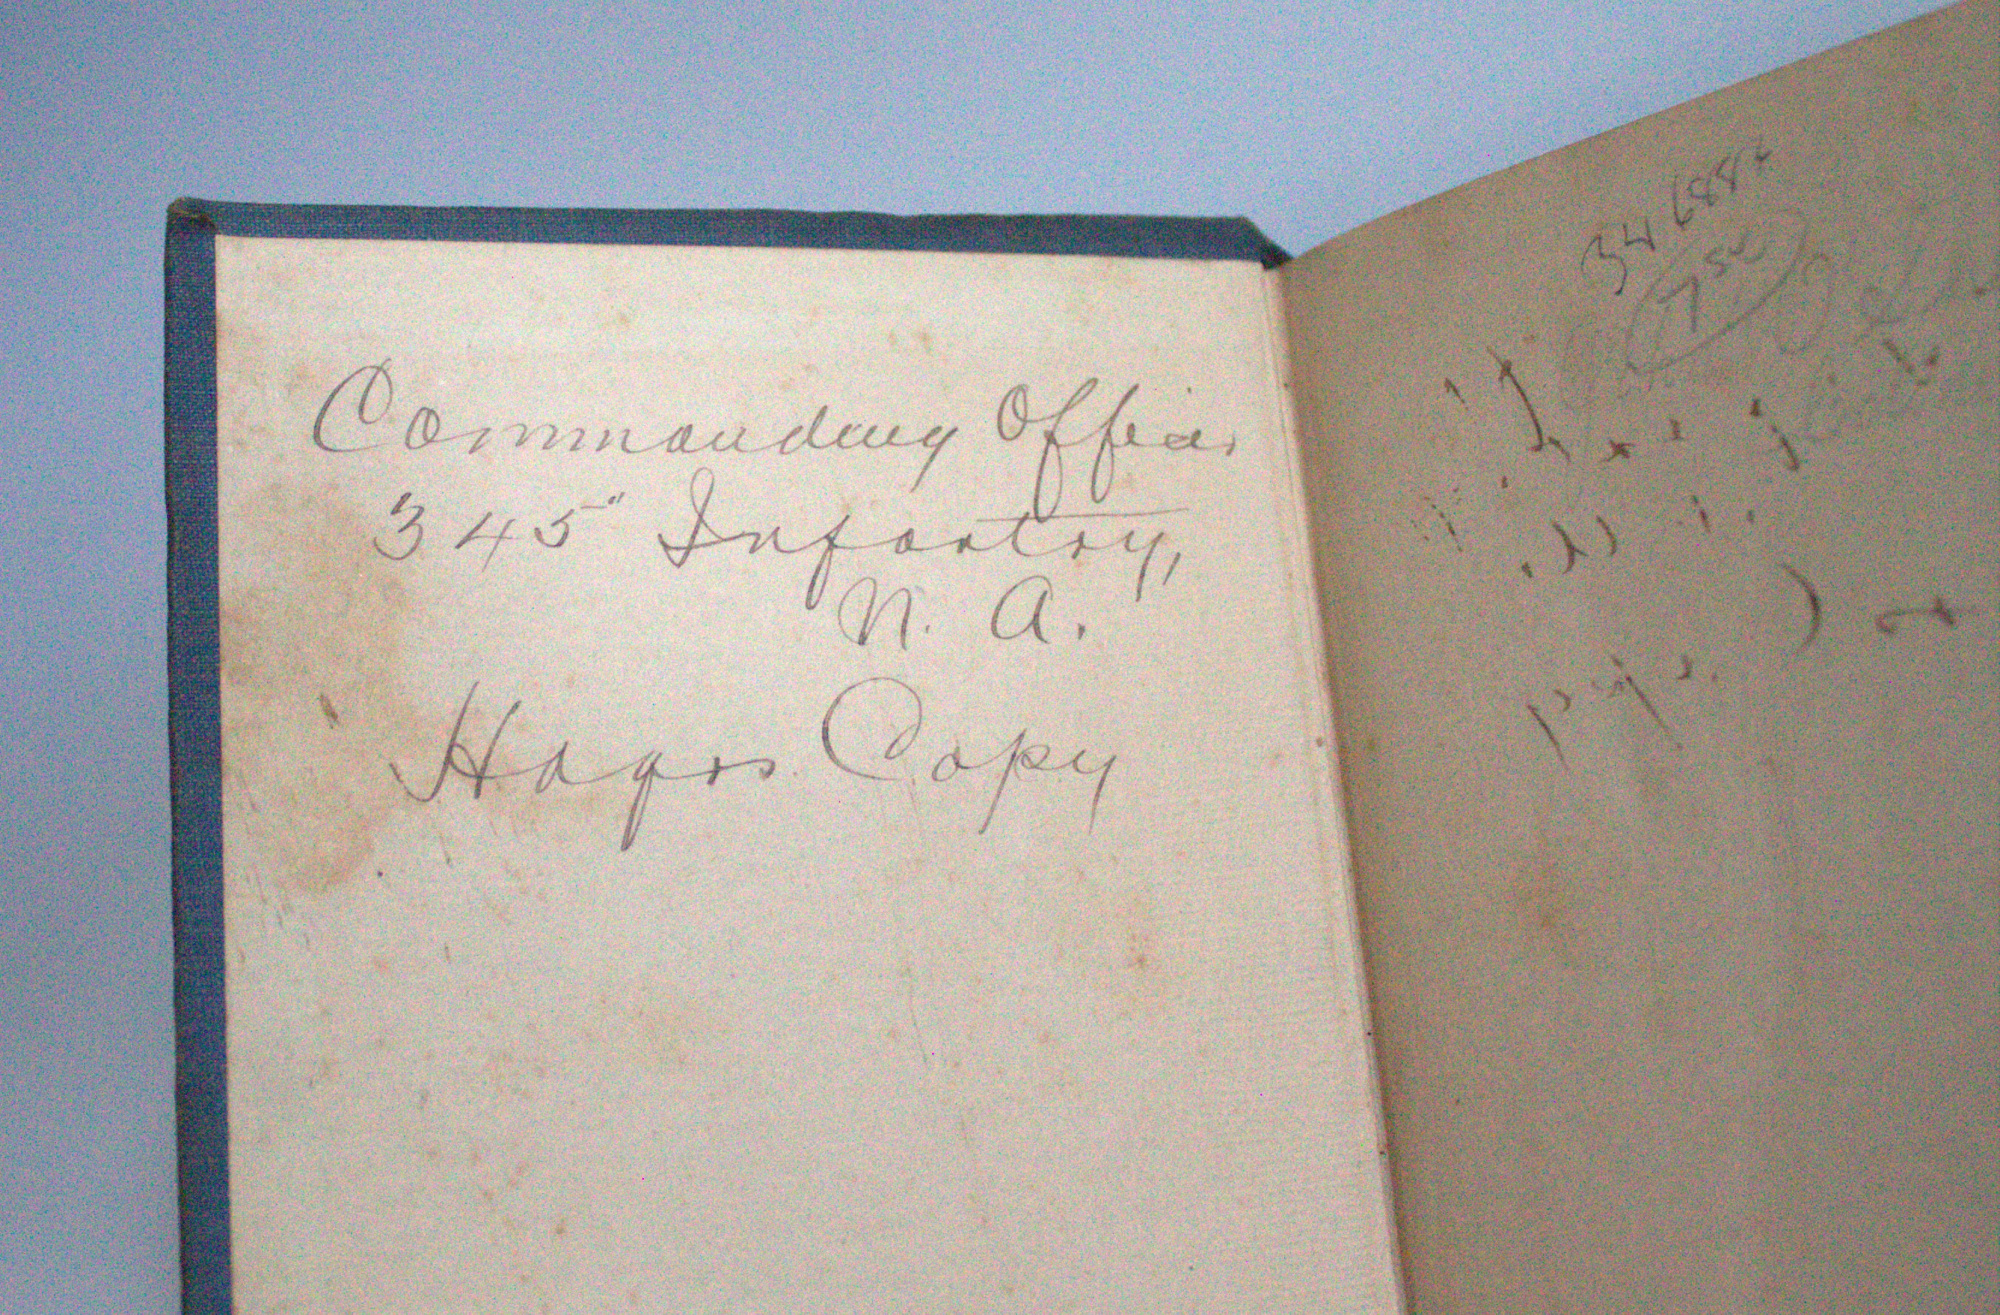 Commanding Officer
345" Infantry,
N. A.
Hdqrs. Copy
346886
7 50